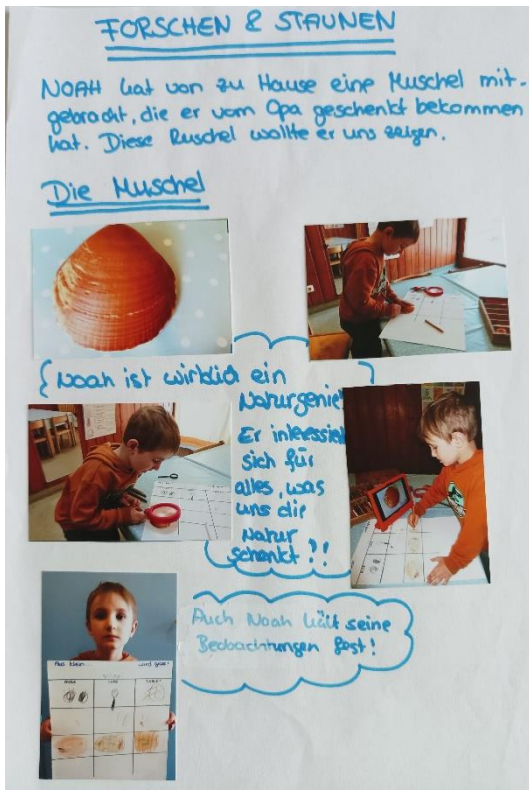 FORSCHEN & STAUNEN
NOAH hat von zu Hause eine Muschel mit-
gebracht, die er vom Opa geschenkt bekommen
hat. Diese Muschel wollte er uns zeigen.
Die Muschel
Noah ist wirklich ein
Naturgenie!
Er interessiert
sich für
alles, was
uns die
Natur
schenkt!!
Auch Noah hält seine
Beobachtungen fest!
Aus klein... ...wird groß!